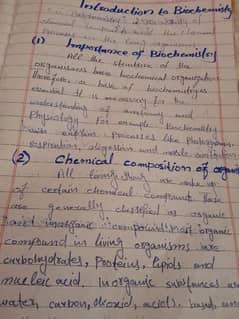 Introduction to Biochemistry
Biochemistry: study of
and the chemical
processes in the living organisms
(1) Importance of Biochemistry
All the structure of the
organisms have biochemical organization
Therefore a basic of biochemistry is
essential. It is necessary for the
understanding of anatomy and
Physiology. For example Biochemistry
explain processes like Photosynthesis
respiration, digestion and
(2) Chemical composition of
All living thing are made up
of certain chemical compounds that
are generally classified as organic
and inorganic compound. Most organic
compound in living organisms are
carbohydrates, Proteins, lipids and
nucleic acid. Inorganic substances are
water, carbon, dioxid, acids, bases, and